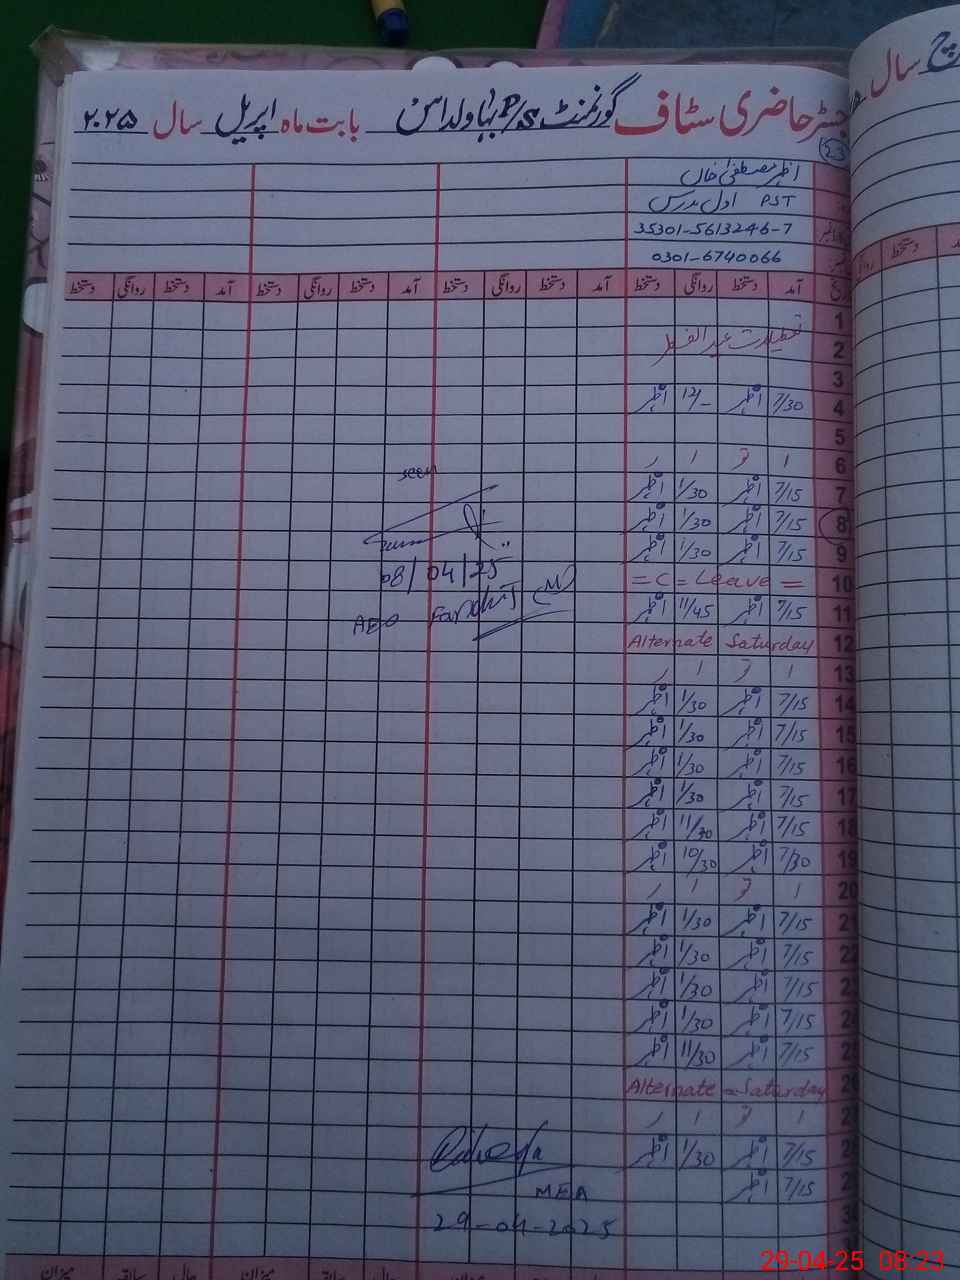 رجسٹر حاضری سٹاف گورنمنٹ P/S بہاولداس بابت ماہ اپریل سال ۲۰۲۵
سال
43
اظہر مصطفیٰ خاں
PST اول مدرس
35301-5613246-7
0301-6740066
آمد دستخط روانگی دستخط آمد دستخط روانگی دستخط آمد دستخط روانگی دستخط آمد دستخط روانگی دستخط
1
2 تعطیلات عید الفطر
3
4 7/30 اظہر 12/- اظہر
5
6 ا تو ا ر
7 7/15 اظہر 1/30 اظہر
8 7/15 اظہر 1/30 اظہر
9 7/15 اظہر 1/30 اظہر
10 = C = Leave =
11 7/15 اظہر 11/45 اظہر
12 Alternate Saturday
13 ا تو ا ر
14 7/15 اظہر 1/30 اظہر
15 7/15 اظہر 1/30 اظہر
16 7/15 اظہر 1/30 اظہر
17 7/15 اظہر 1/30 اظہر
18 7/15 اظہر 11/30 اظہر
19 7/30 اظہر 10/30 اظہر
20 ا تو ا ر
21 7/15 اظہر 1/30 اظہر
22 7/15 اظہر 1/30 اظہر
23 7/15 اظہر 1/30 اظہر
24 7/15 اظہر 1/30 اظہر
25 7/15 اظہر 11/30 اظہر
26 Alternate = Saturday
27 ا تو ا ر
28 7/15 اظہر 1/30 اظہر
29 7/15 اظہر
30
seen
08/04/25
AEO
(M)
MEA
29-04-2025
میزان حال سابقہ میزان حال سابقہ
29-04-25 08:23